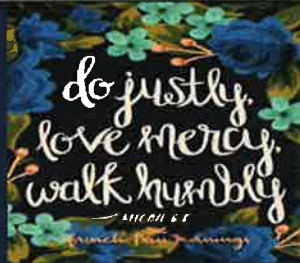 do justly.
love mercy.
walk humbly
MICAH 6:8